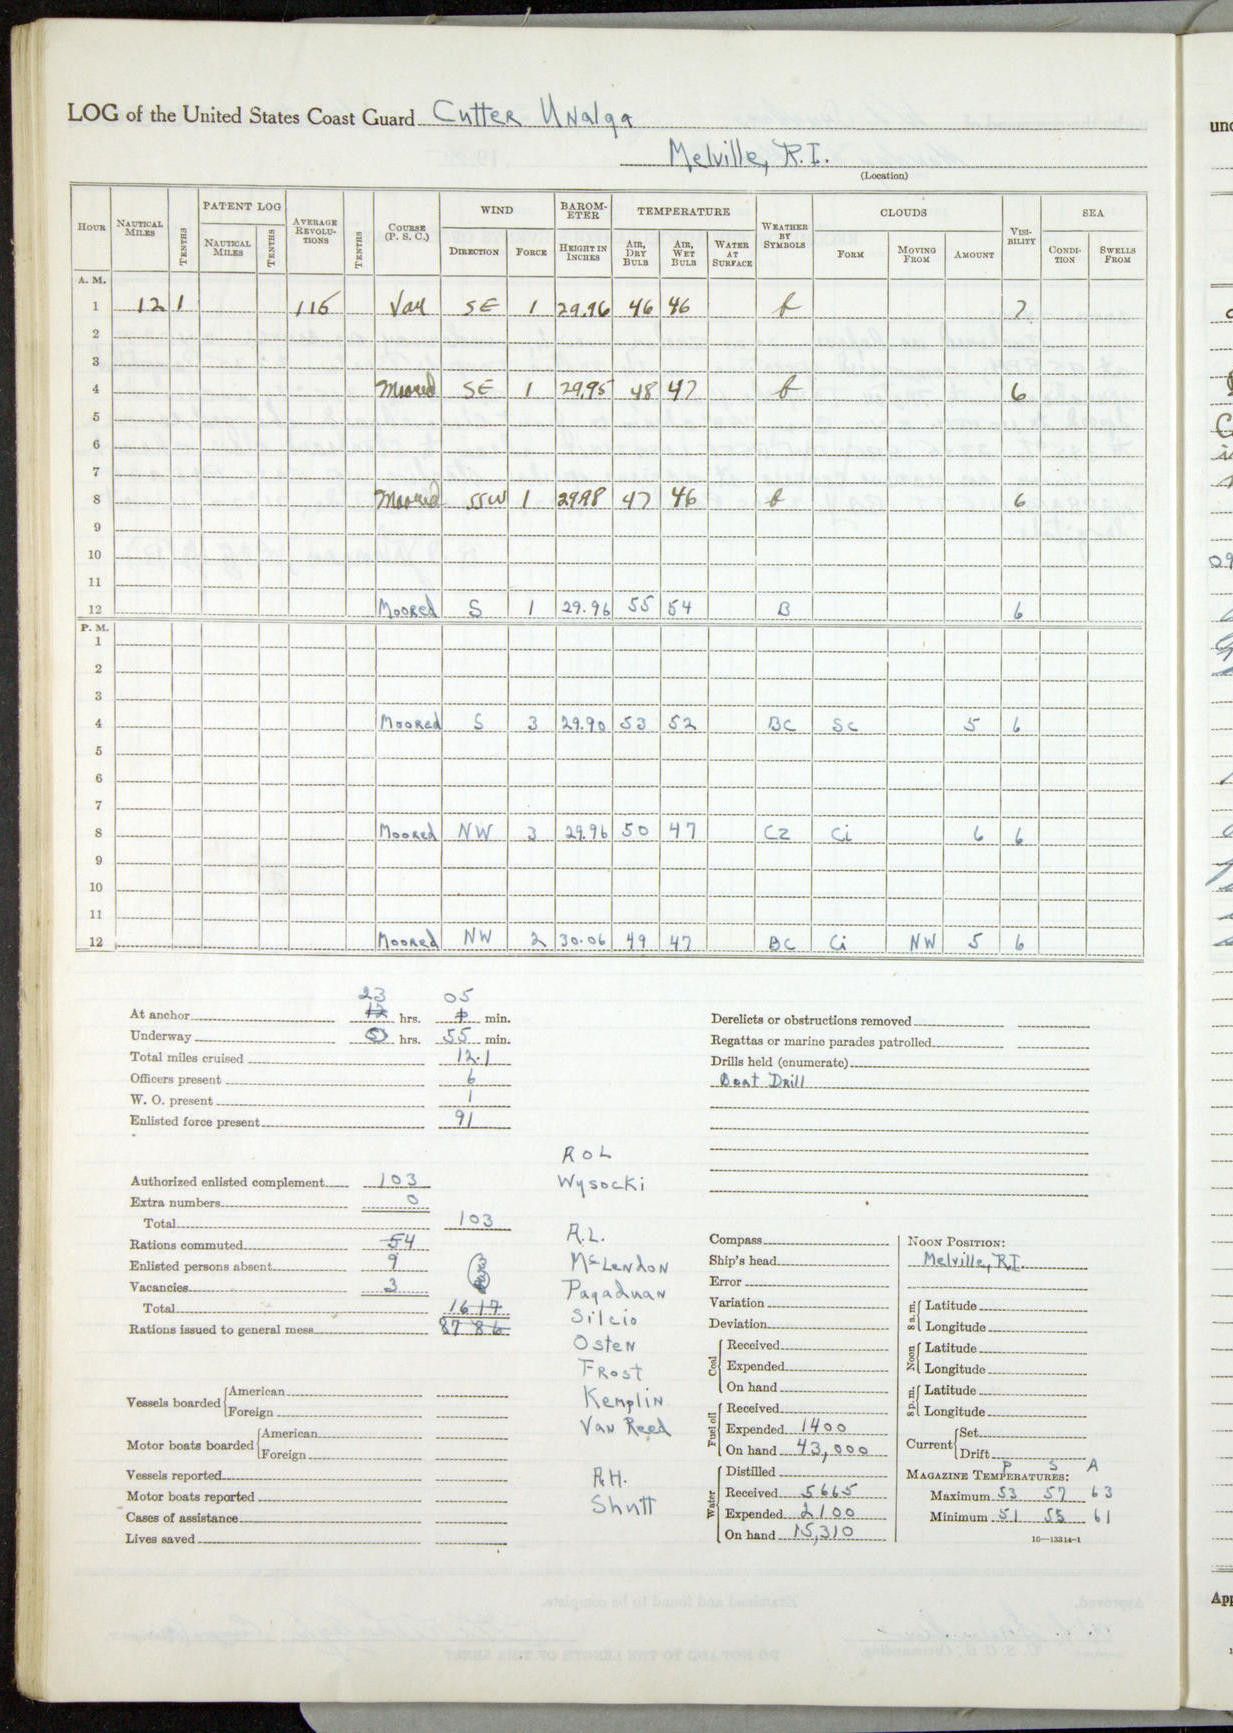 LOG of the United States Coast Guard Cutter Unalga
Melville, R.I.
(Location)
HOUR NAUTICAL MILES TENTHS PATENT LOG NAUTICAL MILES TENTHS AVERAGE REVOLU-TIONS TENTHS COURSE (P. S. C.) WIND DIRECTION FORCE BAROM-ETER HEIGHT IN INCHES TEMPERATURE AIR, DRY BULB AIR, WET BULB WATER AT SURFACE WEATHER BY SYMBOLS CLOUDS FORM MOVING FROM AMOUNT VISI-BILITY SEA CONDI-TION SWELLS FROM
A. M.
1 12 1 115 Var SE 1 29.96 46 46 b 7
2
3
4 Moored SE 1 29.95 48 47 b 6
5
6
7
8 Moored SSW 1 29.98 47 46 b 6
9
10
11
12 Moored S 1 29.96 55 54 B 6
P. M.
1
2
3
4 Moored S 3 29.90 53 52 BC SC 5 6
5
6
7
8 Moored NW 3 29.96 50 47 CZ Ci 6 6
9
10
11
12 Moored NW 2 30.06 49 47 BC Ci NW 5 6
23 05
At anchor 12 hrs. 1 min.
Underway 0 hrs. 55 min.
Total miles cruised 12.1
Officers present 6
W. O. present 1
Enlisted force present 91
Authorized enlisted complement 103
Extra numbers 0
Total 103
Rations commuted 54
Enlisted persons absent 9
Vacancies 3
Total 16 17
Rations issued to general mess 87 86
Vessels boarded American
Foreign
Motor boats boarded American
Foreign
Vessels reported
Motor boats reported
Cases of assistance
Lives saved
ROL
Wysocki
A.L.
McLendon
Pagaduan
Silcio
Osten
Frost
Kemplin
Van Reed
A.H.
Shutt
Derelicts or obstructions removed
Regattas or marine parades patrolled
Drills held (enumerate)
Boat Drill
Compass
Ship's head
Error
Variation
Deviation
Coal Received
Expended
On hand
Fuel oil Received
Expended 1400
On hand 43,000
Water Distilled
Received 5665
Expended 2100
On hand 15,310
NOON POSITION:
Melville, R.I.
8 a.m. Latitude
Longitude
Noon Latitude
Longitude
8 p.m. Latitude
Longitude
Current Set
Drift
P S A
MAGAZINE TEMPERATURES:
Maximum 53 57 63
Minimum 51 55 61
16—13314-1